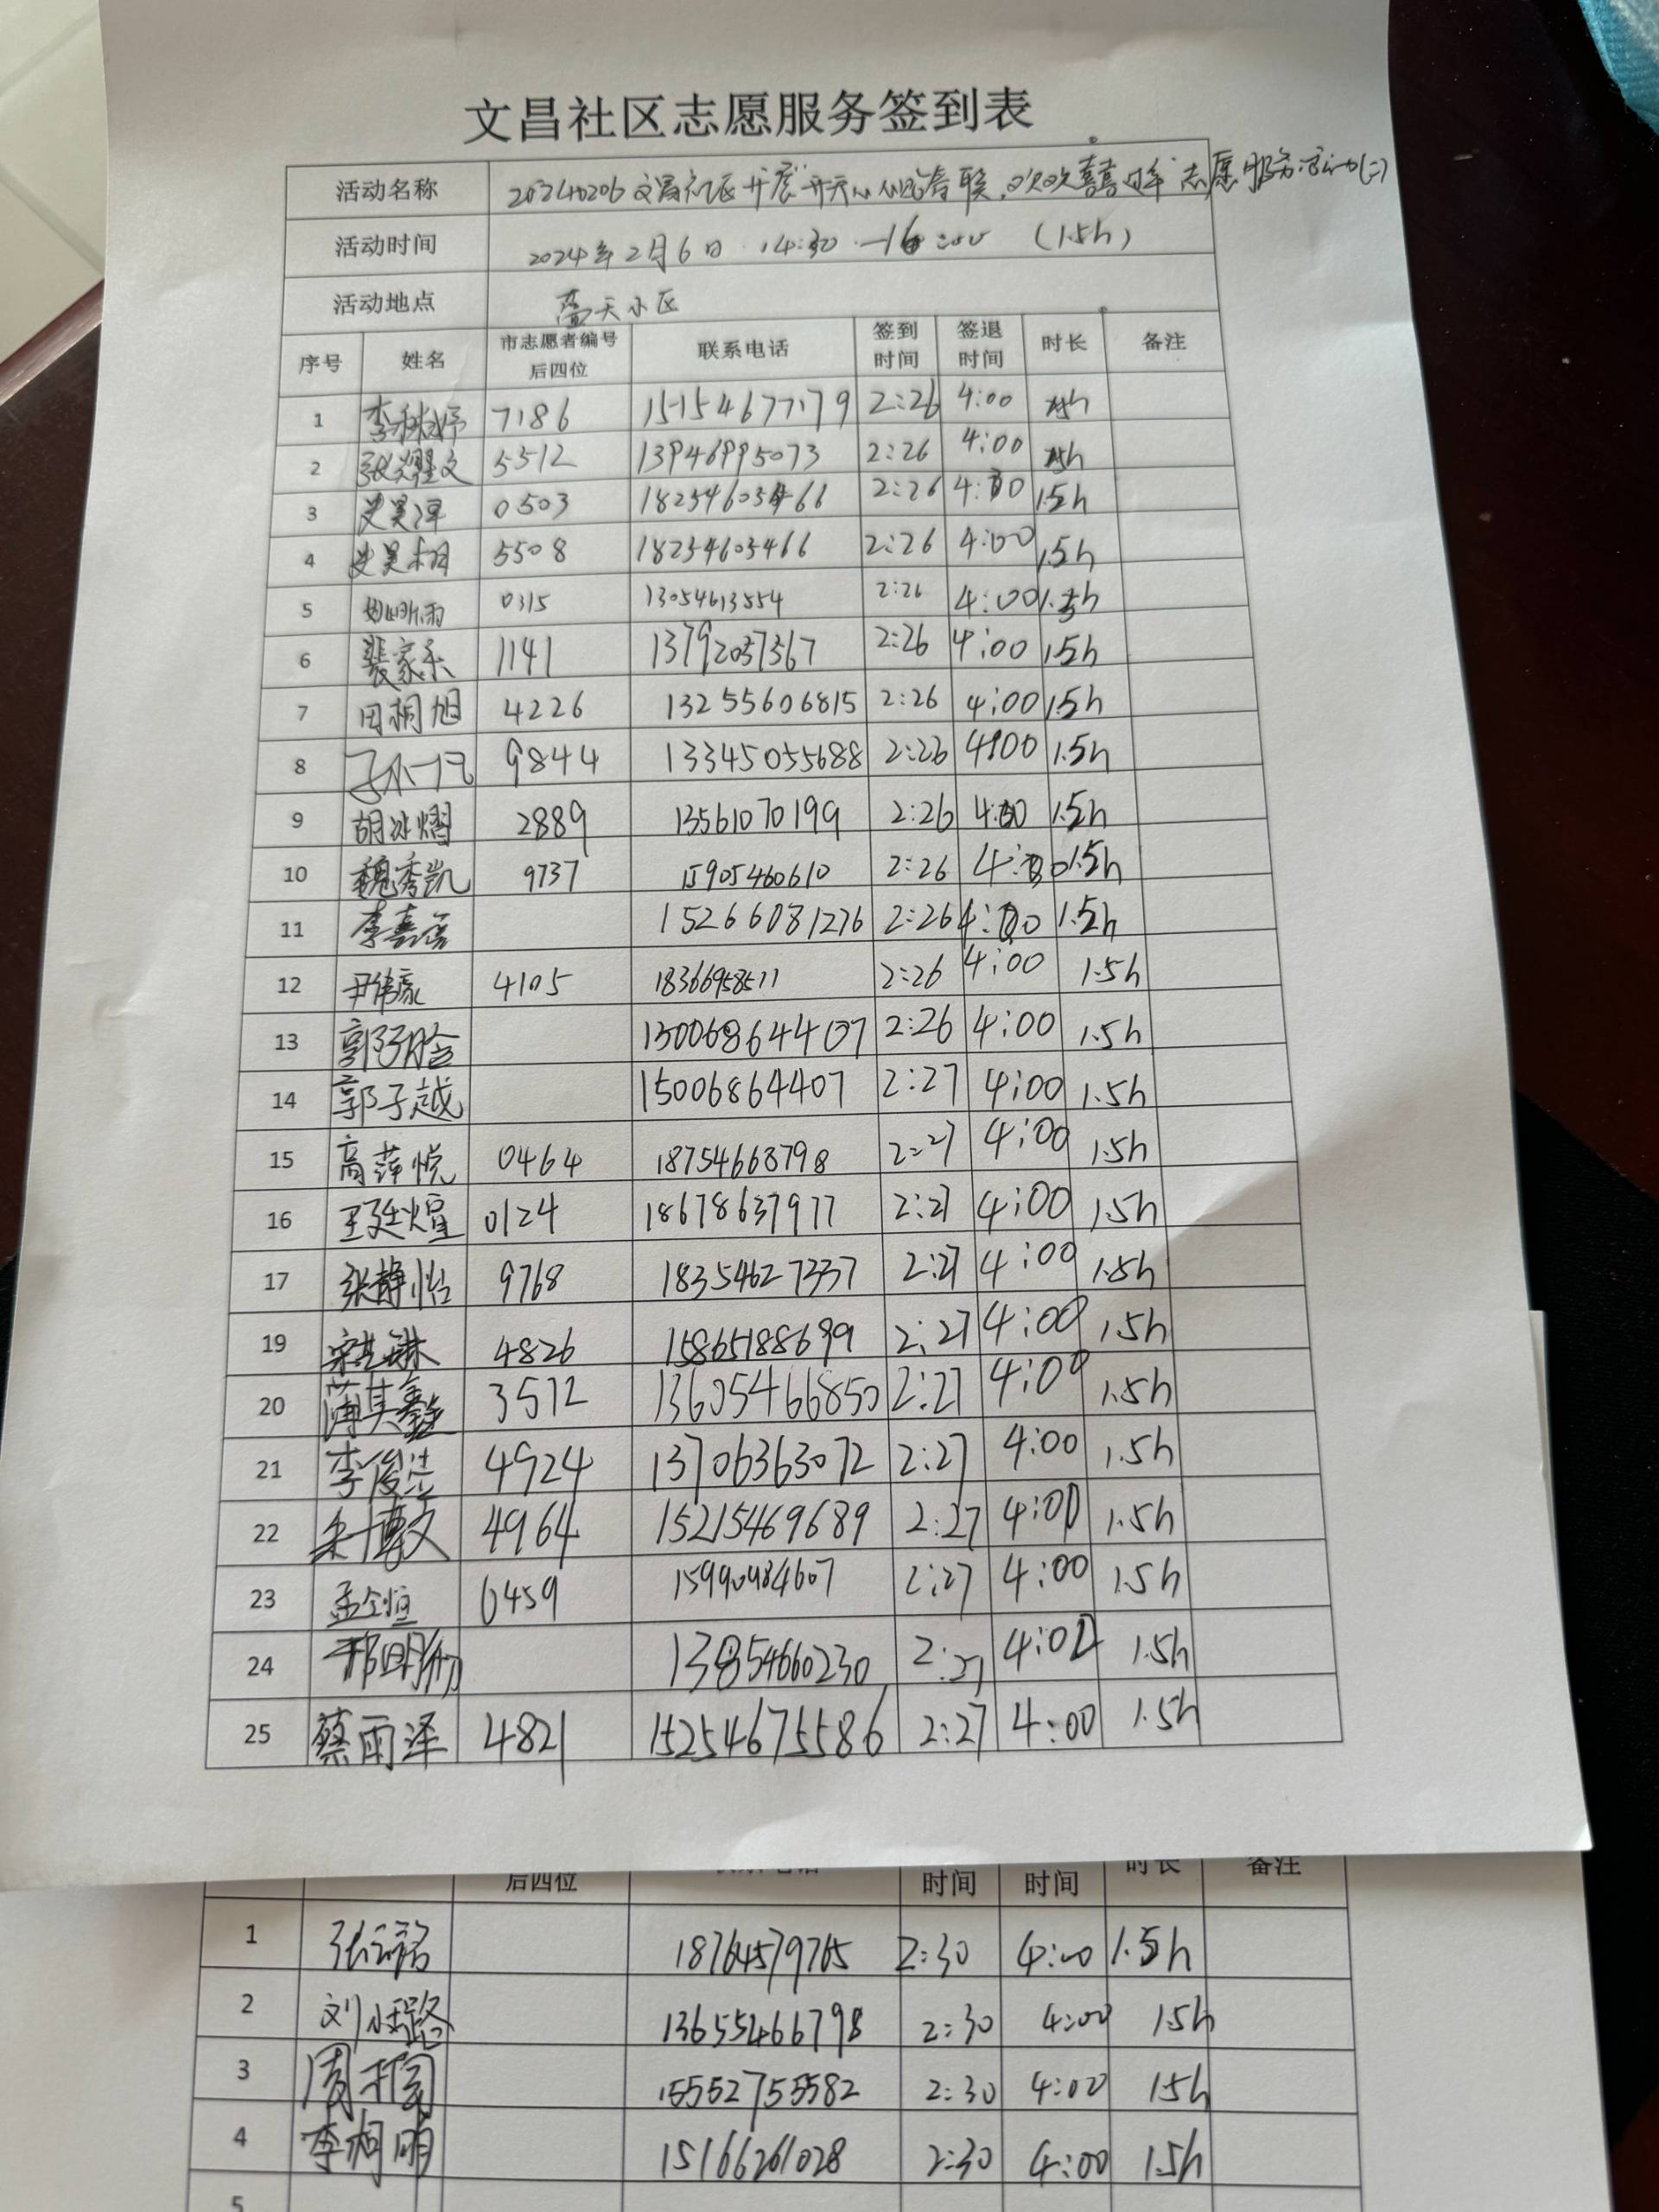 文昌社区志愿服务签到表
活动名称 20240206文昌社区开展 志愿服务活动(二)
活动时间 2024年2月6日 14:30—16:00 (1.5h)
活动地点 天小区
序号 姓名 市志愿者编号后四位 联系电话 签到时间 签退时间 时长 备注
1 7186 15154677179 2:26 4:00
2 张耀文 5512 13946995073 2:26 4:00
3 史昊泽 0503 18254603466 2:26 4:00 1.5h
4 史昊桐 5508 18254603466 2:26 4:00 1.5h
5 0315 13054613554 2:26 4:00 1.5h
6 裴家乐 1141 13792037367 2:26 4:00 1.5h
7 田桐旭 4226 13255606815 2:26 4:00 1.5h
8 9844 13345055688 2:26 4:00 1.5h
9 胡冰熠 2889 13561070199 2:26 4:00 1.5h
10 魏秀凯 9737 15905460610 2:26 4:00 1.5h
11 李嘉 15266081276 2:26 4:00 1.5h
12 尹伟豪 4105 18366958511 2:26 4:00 1.5h
13 郭 2:26 4:00 1.5h
14 郭子越 15006864407 2:27 4:00 1.5h
15 高萍悦 0464 18754668798 2:27 4:00 1.5h
16 王廷煊 0124 18678637977 2:27 4:00 1.5h
17 张静怡 9768 18354627337 2:27 4:00 1.5h
19 宋 4826 15865188699 2:27 4:00 1.5h
20 薄其鑫 3572 13605466850 2:27 4:00 1.5h
21 李俊 4924 13706363072 2:27 4:00 1.5h
22 朱博文 4964 15215469689 2:27 4:00 1.5h
23 孟 0459 15990984607 2:27 4:00 1.5h
24 13854660230 2:27 4:00 1.5h
25 蔡雨泽 4821 15254675586 2:27 4:00 1.5h
后四位 时间 时间 时长 备注
1 张 18764579765 2:30 4:00 1.5h
2 刘 13655466798 2:30 4:00 1.5h
3 周 15552755582 2:30 4:00 1.5h
4 李柯明 15166261028 2:30 4:00 1.5h
5